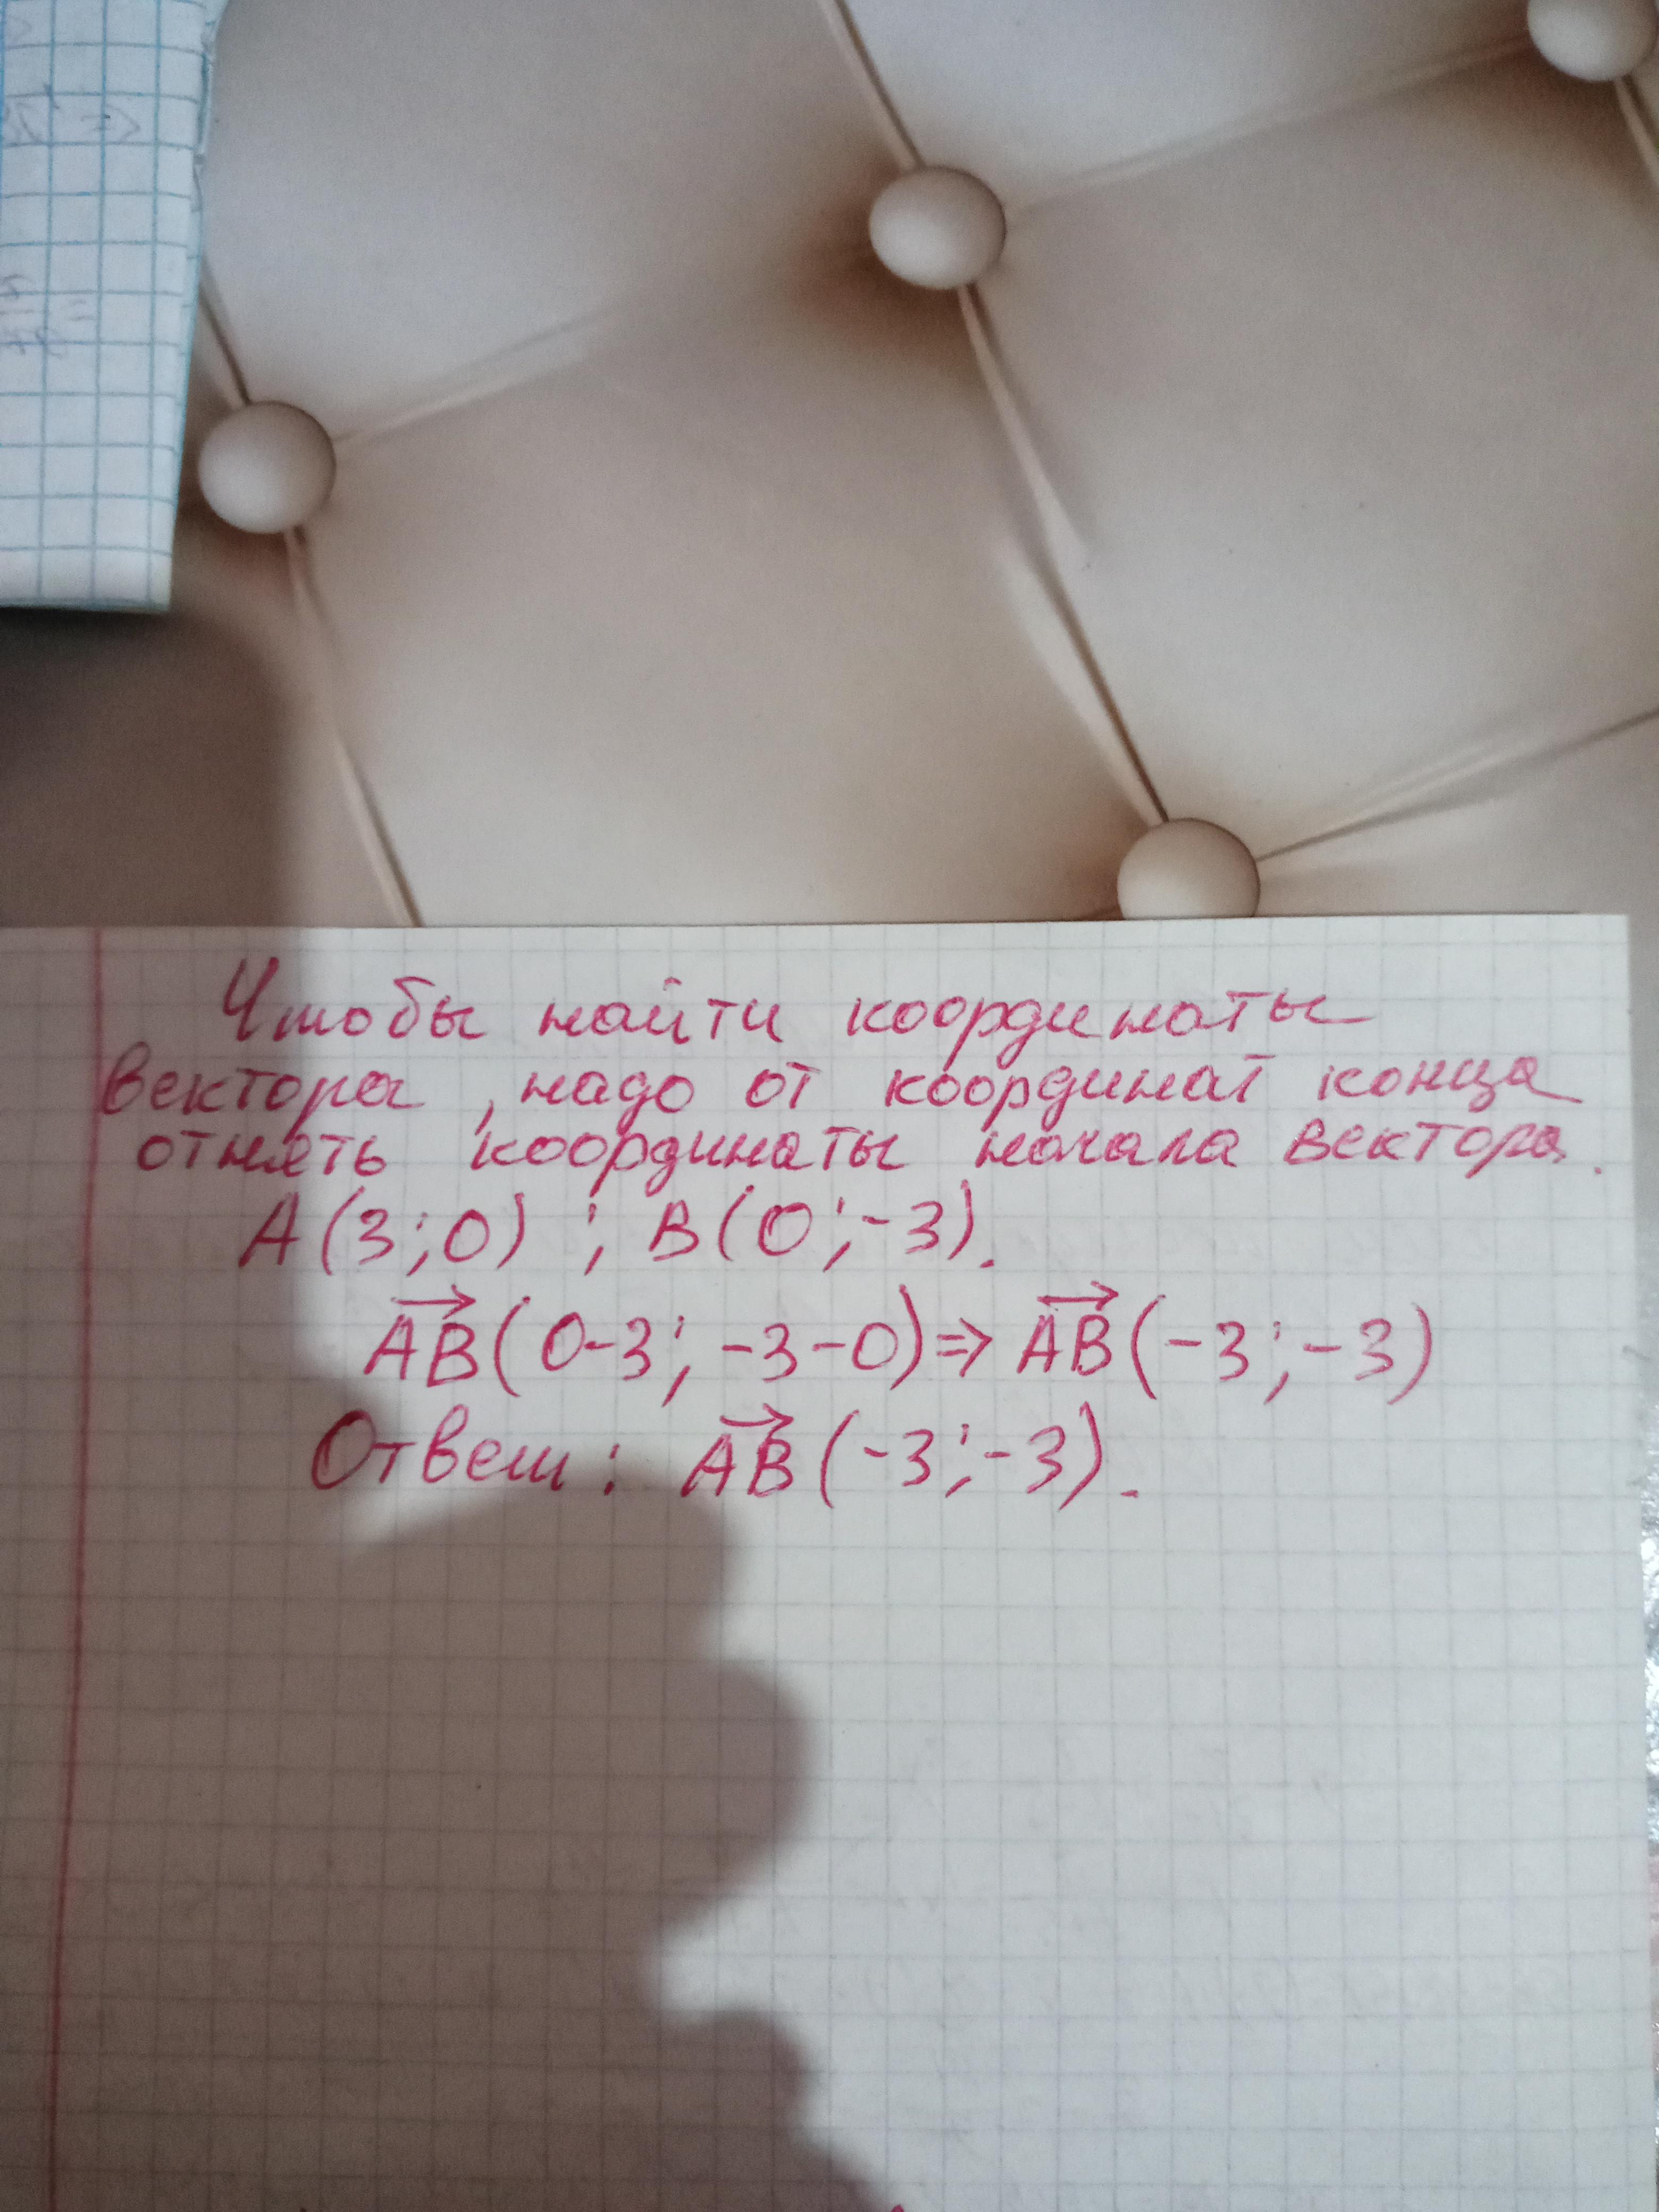 Чтобы найти координаты
вектора, надо от координат конца
отнять координаты начала вектора.
A(3;0) ; B(0;-3).
A͞B⃗(0-3; -3-0)⇒ AB⃗(-3;-3)
Ответ: AB⃗(-3;-3).